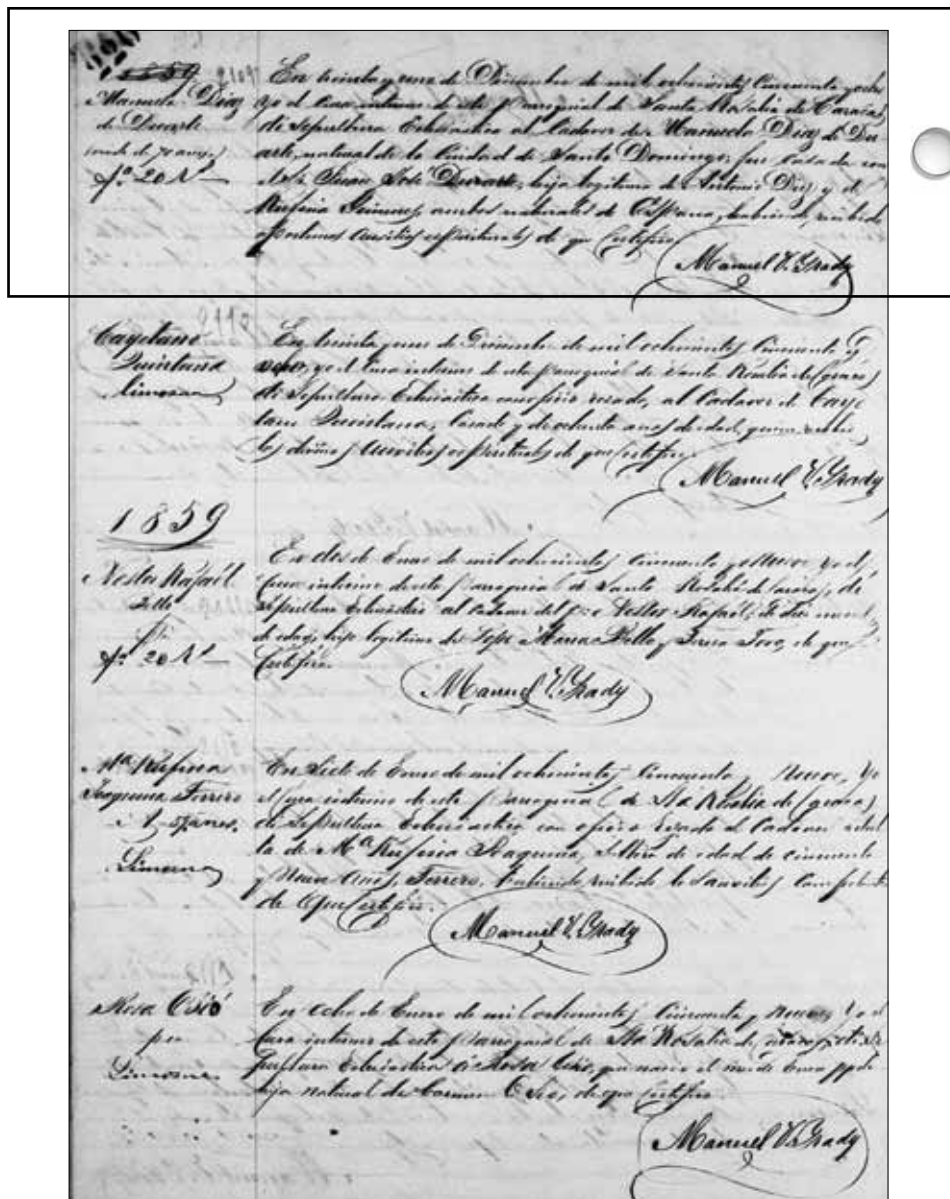 1859
Manuela Diaz
de Duarte
En treinta y uno de Diciembre de mil ochocientos cincuenta y ocho
yo el Cura interino de esta parroquial de Santa Rosalia de Caracas
di sepultura Eclesiastica al Cadaver de Manuela Diaz de Du
arte, natural de la Ciudad de Santo Domingo, fue casada con
Juan José Duarte, hija legitima de Antonio Diez y de
Rufina Jimenes, ambos naturales de España, habiendo recibido
auxilios espirituales de que certifico
Manuel V. Grady
Cayetano
Quintana
limosna
En treinta y uno de Diciembre de mil ochocientos cincuenta y
ocho, yo el Cura interino de esta parroquial de Santa Rosalia de Caracas
di sepultura Eclesiastica con oficio rezado, al Cadaver de Caye
tano Quintana, casado y de ochenta años de edad, quien recibio
los divinos auxilios espirituales de que certifico
Manuel V. Grady
1859
Nestor Rafaél
Bello
En dos de Enero de mil ochocientos cincuenta y nueve yo el
Cura interino de esta parroquial de Santa Rosalia de Caracas, di
sepultura Eclesiastica al Cadaver del Nestor Rafaél, de diez meses
de edad, hijo legitimo de José Maria Bello y Teresa Toro, de que
Certifico.
Manuel V. Grady
Mª Rufina
Joaquina Ferrero
Limosna
En siete de Enero de mil ochocientos cincuenta y nueve, yo
el Cura interino de esta parroquial de Sta Rosalia de Caracas
di sepultura Eclesiastica con oficio rezado al Cadaver
de Mª Rufina Joaquina, de edad de cincuenta
y nueve años, Ferrero, habiendo recibido
de que certifico.
Manuel V. Grady
Rosa
Limosna
En ocho de Enero de mil ochocientos cincuenta y nueve, yo el
Cura interino de esta parroquial de Sta Rosalia de Caracas, di se
pultura Eclesiastica á Rosa que nacio el
hija natural de Carmen de que certifico
Manuel V. Grady